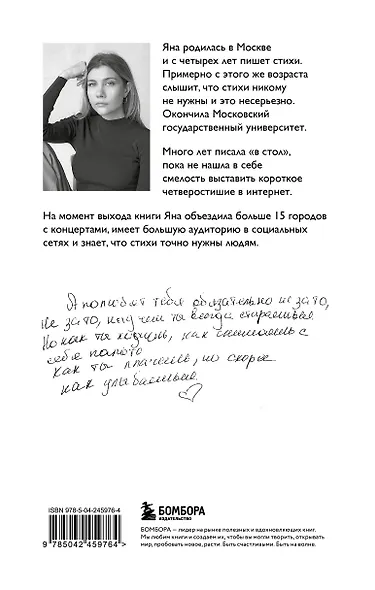 Яна родилась в Москве
и с четырех лет пишет стихи.
Примерно с этого же возраста
слышит, что стихи никому
не нужны и это несерьезно.
Окончила Московский
государственный университет.
Много лет писала «в стол»,
пока не нашла в себе
смелость выставить короткое
четверостишие в интернет.
На момент выхода книги Яна объездила больше 15 городов
с концертами, имеет большую аудиторию в социальных
сетях и знает, что стихи точно нужны людям.
А полюбят тебя обязательно не за то,
Не за то, ты всегда
Но как ты как снимаешь с
себя пальто
Как ты плачешь, но скорее
как улыбаешься
ISBN 978-5-04-245976-4
9 785042 459764 >
БОМБОРА
ИЗДАТЕЛЬСТВО
БОМБОРА – лидер на рынке полезных и вдохновляющих книг.
Мы любим книги и создаем их, чтобы вы могли творить, открывать
мир, пробовать новое, расти. Быть счастливыми. Быть на волне.